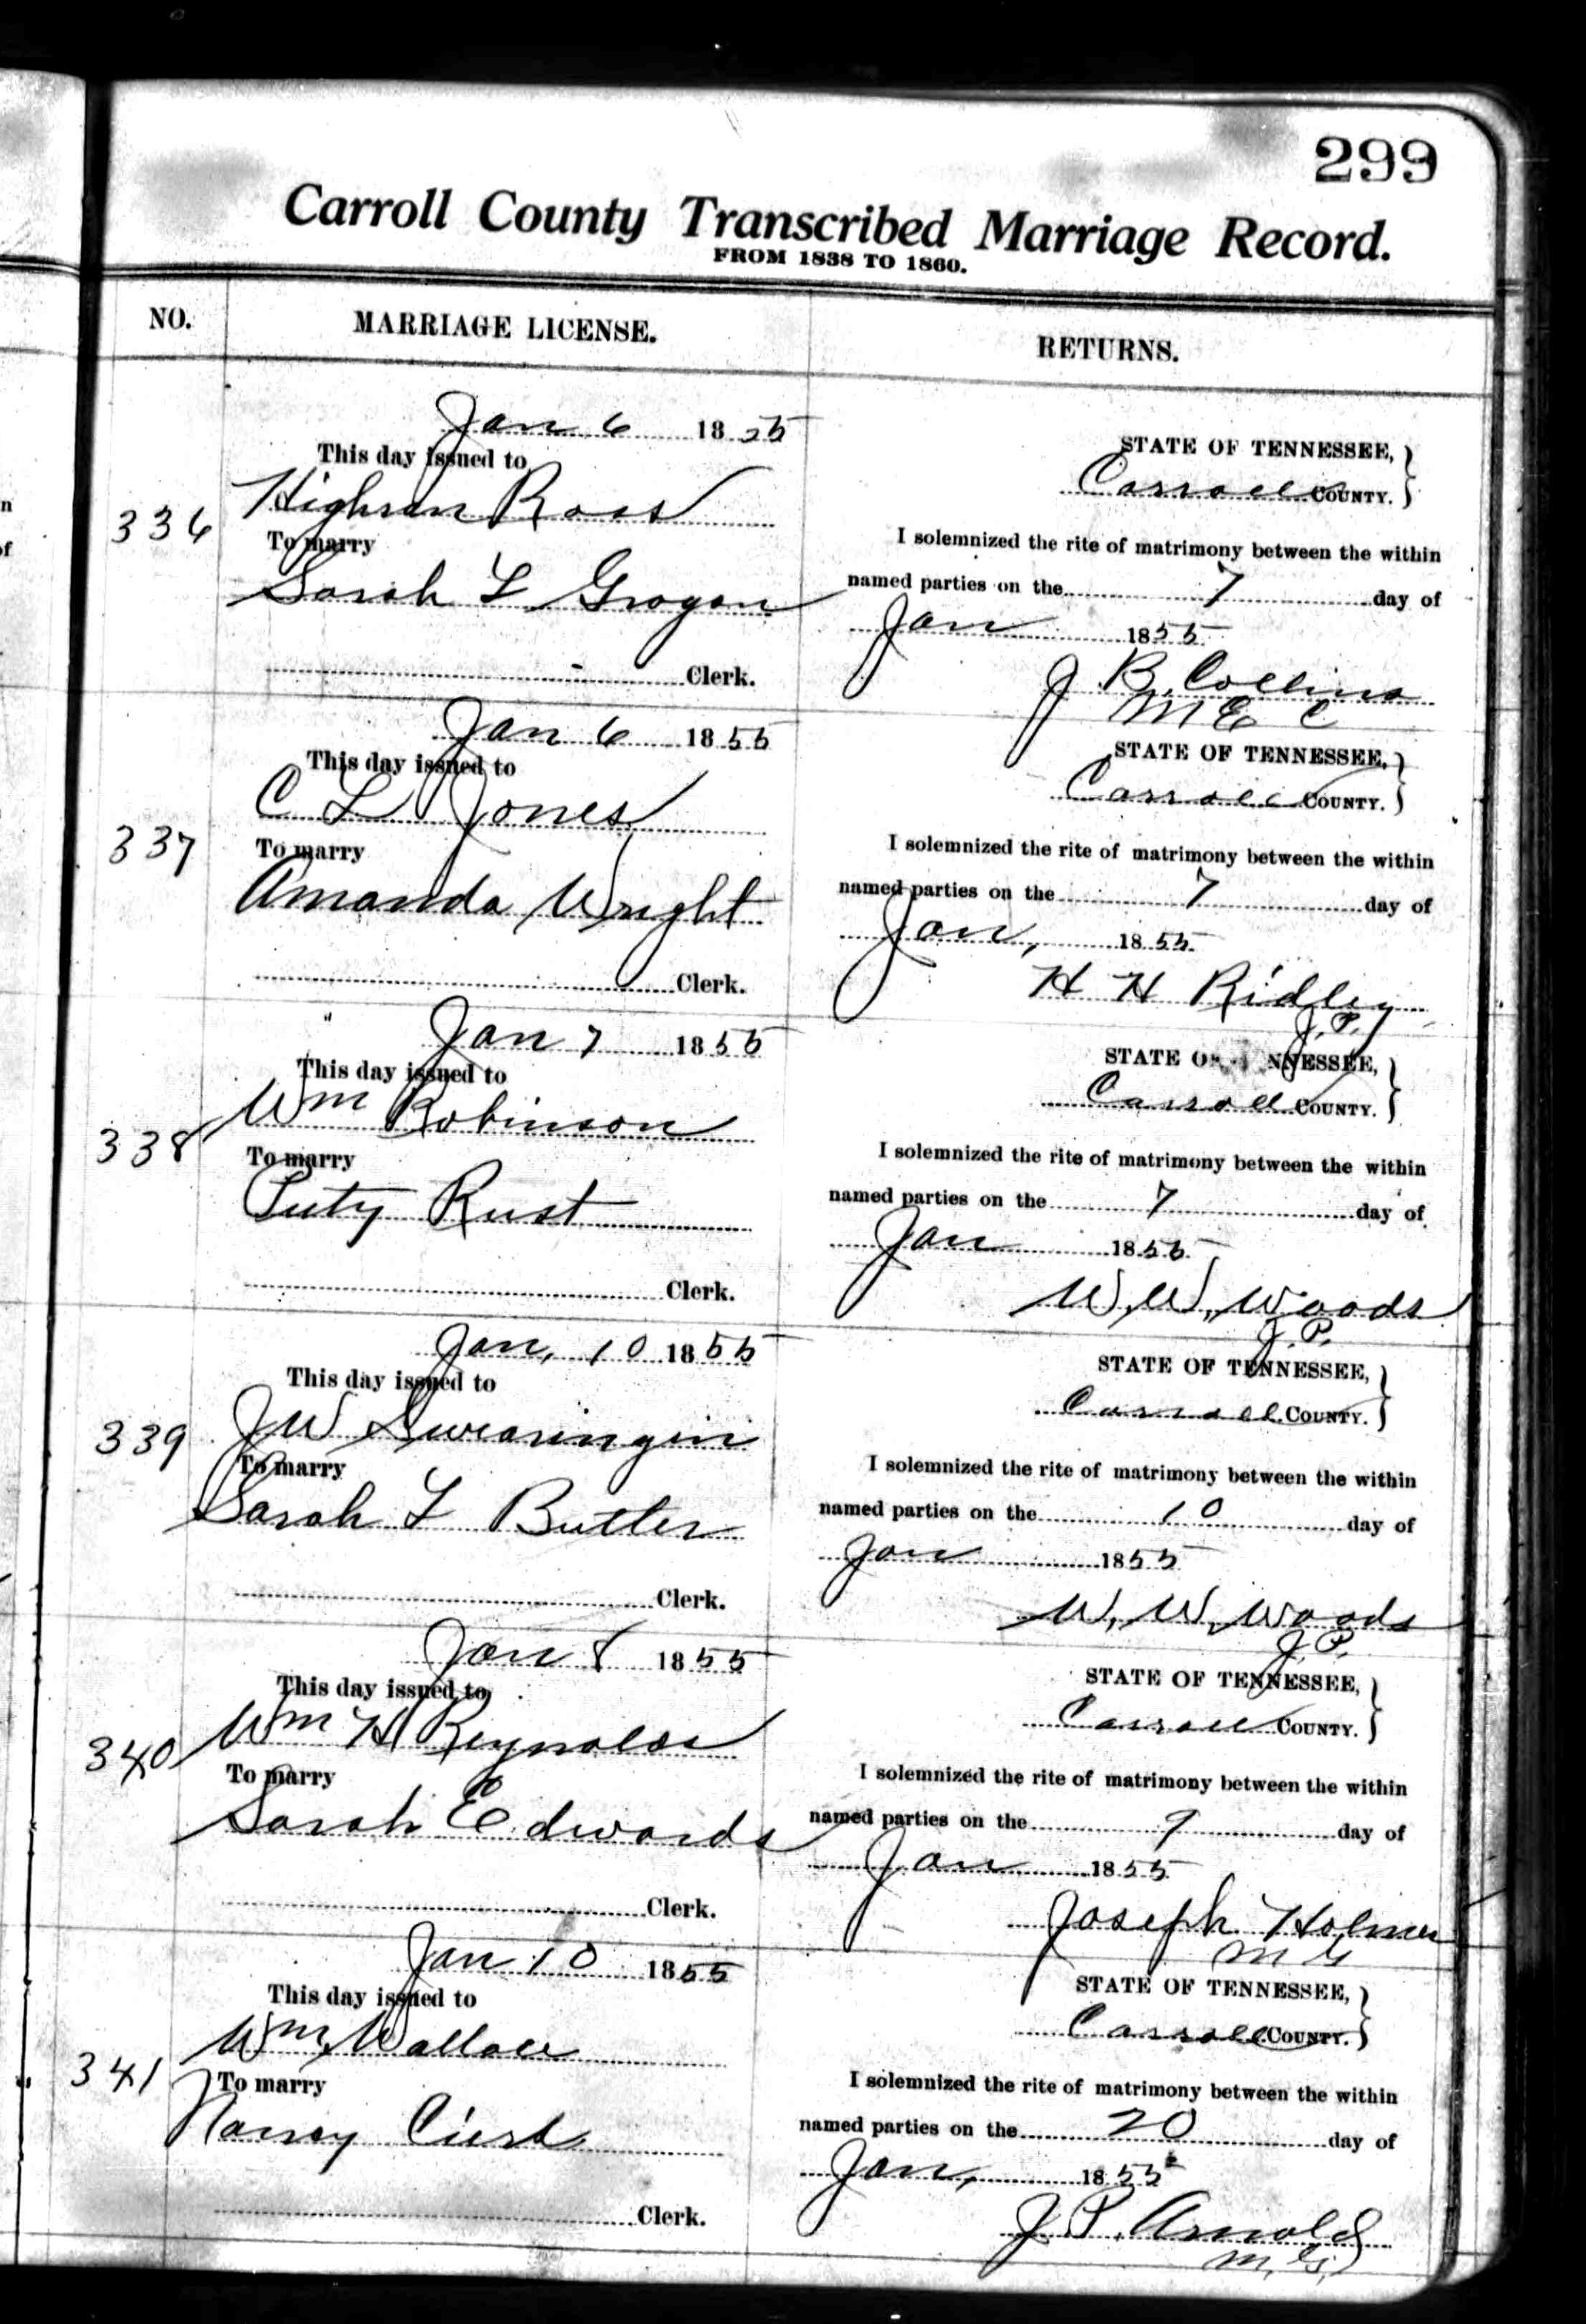 299
Carroll County Transcribed Marriage Record.
FROM 1838 TO 1860.
NO. MARRIAGE LICENSE. RETURNS.
336
Jan 6 1855
This day issued to
Ross
To marry
Sarah L Grogan
Clerk.
STATE OF TENNESSEE,
Carroll COUNTY.
I solemnized the rite of matrimony between the within
named parties on the 7 day of
Jan 1855
J B. Collins
M E C
337
Jan 6 1855
This day issued to
C L Jones
To marry
Amanda Wright
Clerk.
STATE OF TENNESSEE,
Carroll COUNTY.
I solemnized the rite of matrimony between the within
named parties on the 7 day of
Jan, 1855
H H Ridley
J. P.
338
Jan 7 1855
This day issued to
Wm Robinson
To marry
Rust
Clerk.
STATE OF TENNESSEE,
Carroll COUNTY.
I solemnized the rite of matrimony between the within
named parties on the 7 day of
Jan 1855
W. W. Woods
J. P.
339
Jan, 10 1855
This day issued to
J W Swearingin
To marry
Sarah L Butler
Clerk.
STATE OF TENNESSEE,
Carroll COUNTY.
I solemnized the rite of matrimony between the within
named parties on the 10 day of
Jan 1855
W. W. Woods
J. P.
340
Jan 8 1855
This day issued to
Wm H Reynolds
To marry
Sarah Edwards
Clerk.
STATE OF TENNESSEE,
Carroll COUNTY.
I solemnized the rite of matrimony between the within
named parties on the 9 day of
Jan 1855
Joseph Holmes
M G
341
Jan 10 1855
This day issued to
Wm. Wallace
To marry
Nancy
Clerk.
STATE OF TENNESSEE,
Carroll COUNTY.
I solemnized the rite of matrimony between the within
named parties on the 20 day of
Jan, 1855
J. P. Arnold
M. G.